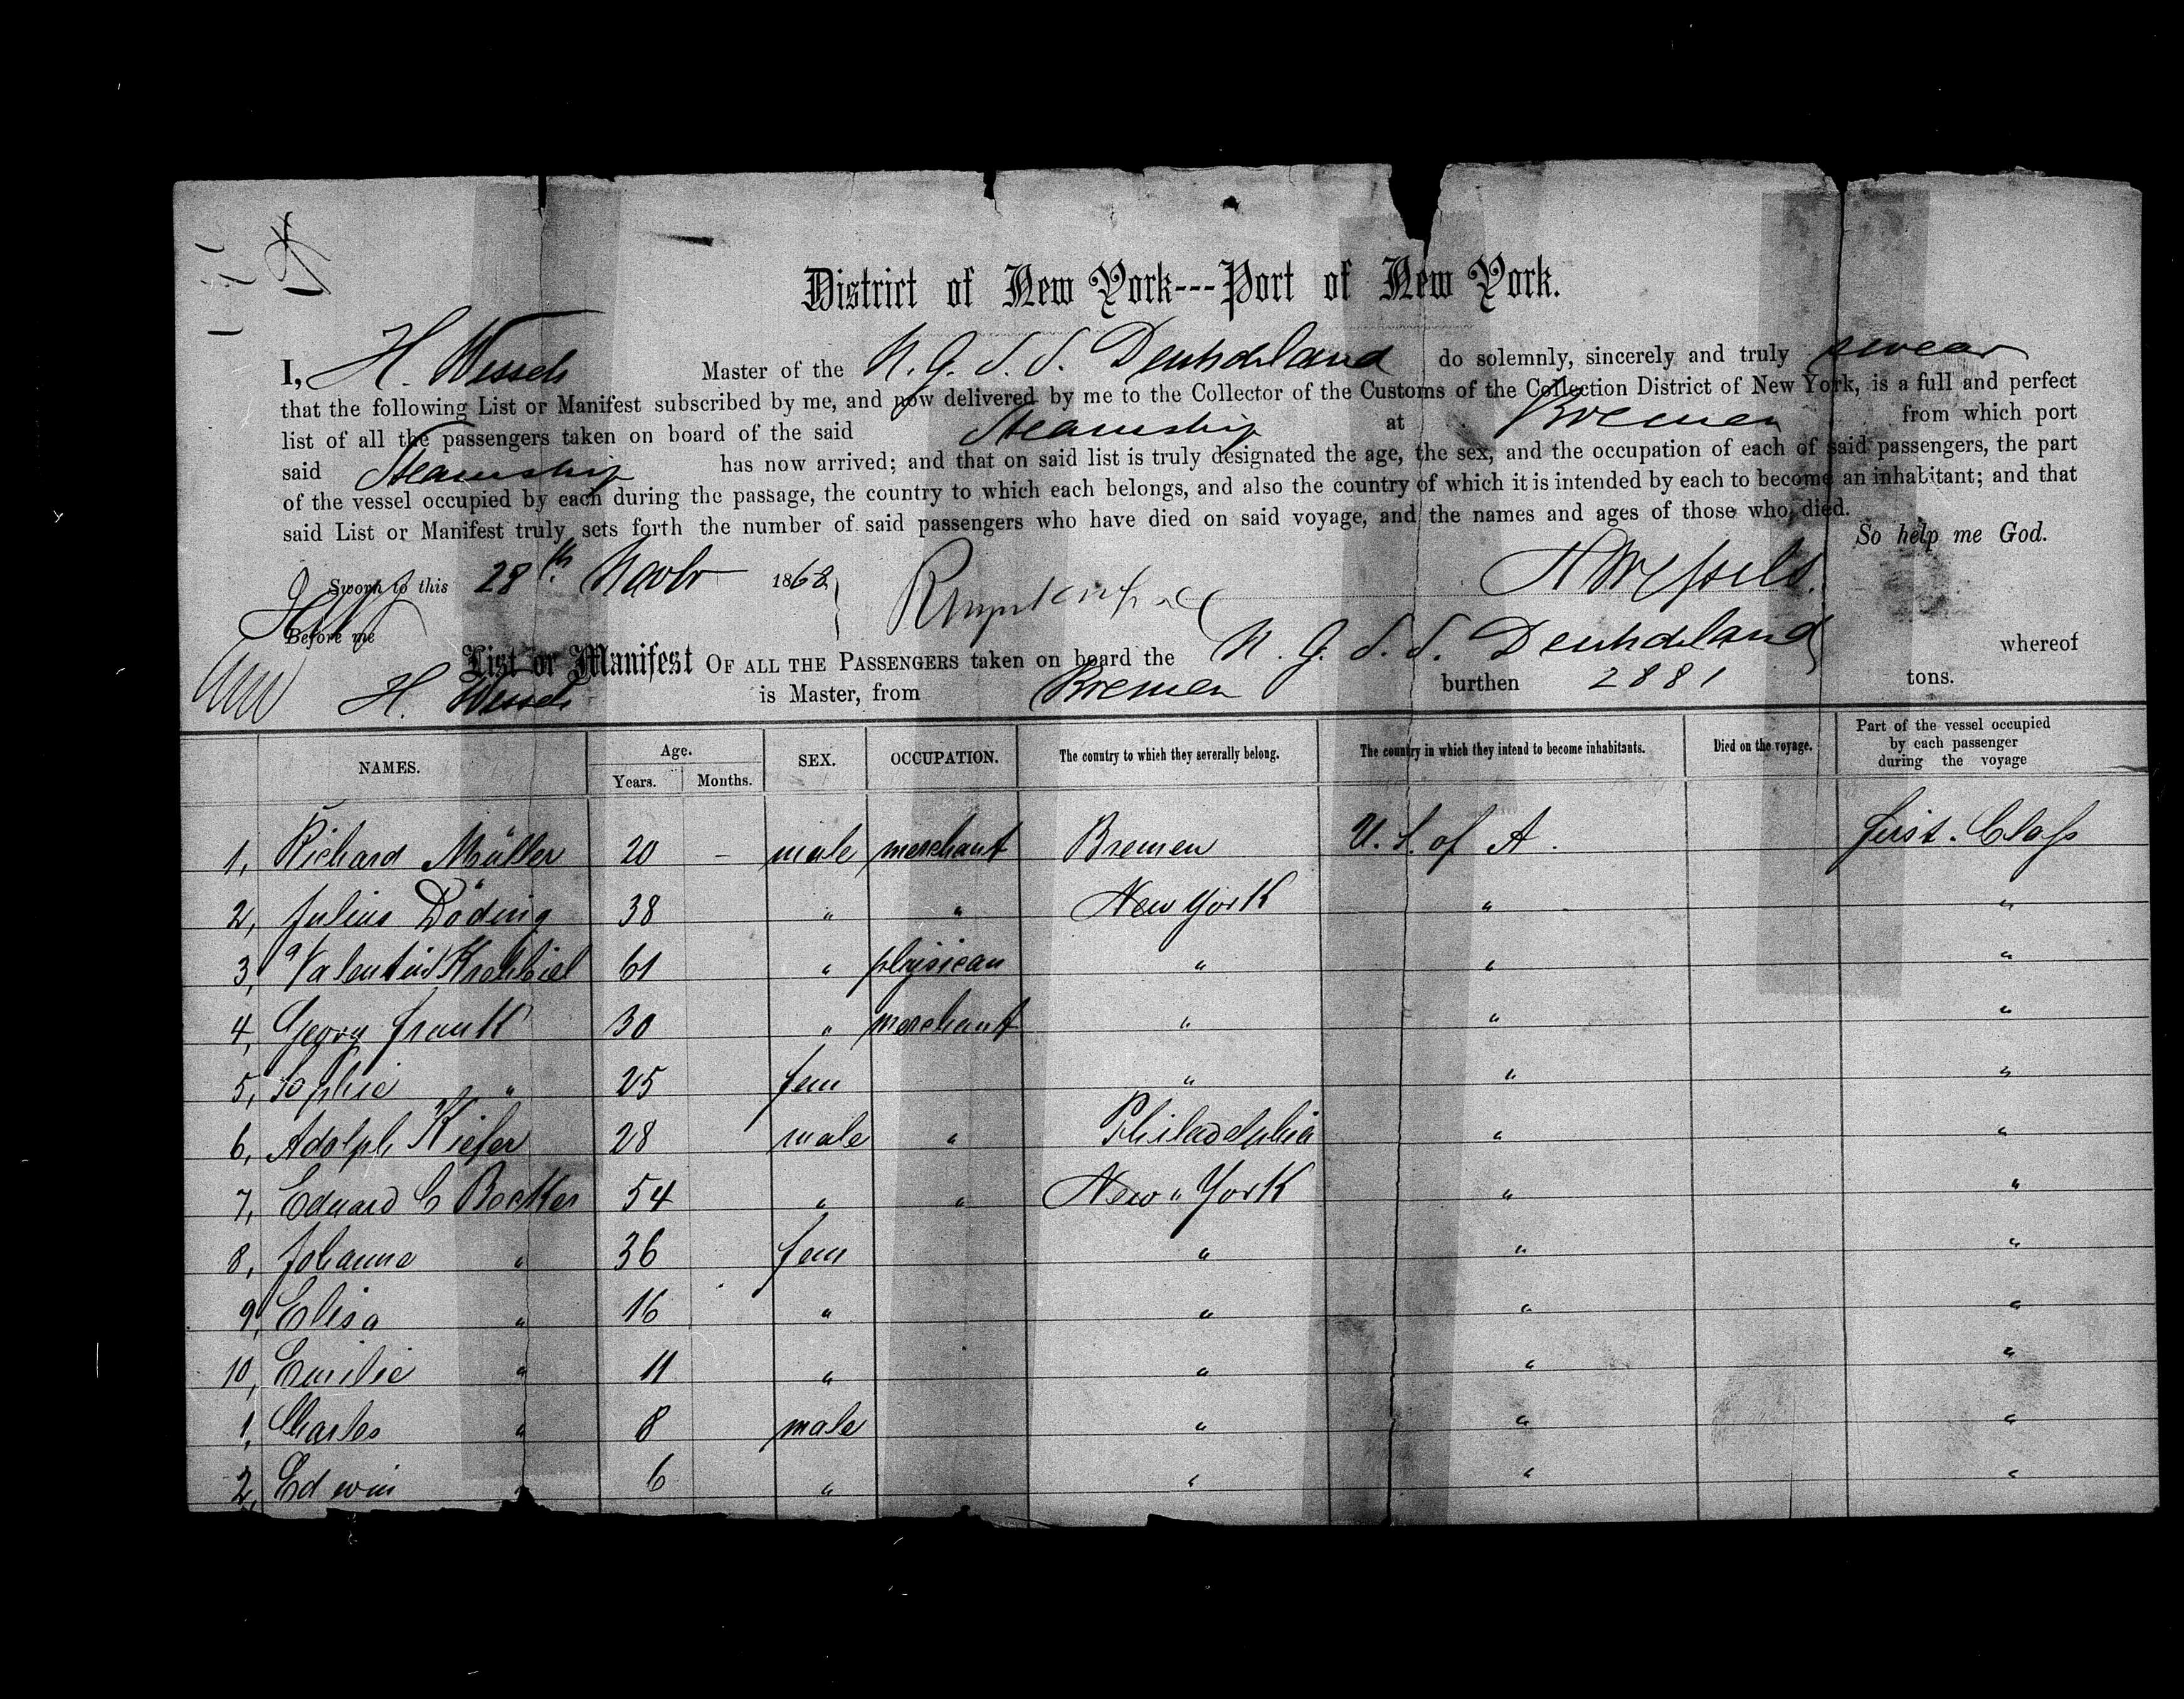 District of New York---Port of New York.
I, H. Wessels Master of the N. G. S. S. Deutschland do solemnly, sincerely and truly swear
that the following List or Manifest subscribed by me, and now delivered by me to the Collector of the Customs of the Collection District of New York, is a full and perfect
list of all the passengers taken on board of the said Steamship at Bremen from which port
said Steamship has now arrived; and that on said list is truly designated the age, the sex, and the occupation of each of said passengers, the part
of the vessel occupied by each during the passage, the country to which each belongs, and also the country of which it is intended by each to become an inhabitant; and that
said List or Manifest truly sets forth the number of said passengers who have died on said voyage, and the names and ages of those who died.
So help me God.
Sworn to this 28th Novbr 1868 H Wessels.
Before me
List or Manifest OF ALL THE PASSENGERS taken on board the N. G. S. S. Deutschland whereof
H. Wessels is Master, from Bremen burthen 2881 tons.
NAMES. Age. Years. Months. SEX. OCCUPATION. The country to which they severally belong. The country in which they intend to become inhabitants. Died on the voyage. Part of the vessel occupied by each passenger during the voyage
1, Richard Müller 20 - male merchant Bremen U. S. of A. first. Class
2, Julius Döding 38 " " New York " "
3, Valentin Krehbiel 61 " physican " " "
4, Georg Frank 30 " merchant " " "
5, Sophie " 25 fem " " "
6, Adolph Kiefer 28 male " Philadelphia " "
7, Eduard C Becker 54 " " New " York " "
8, Johanne " 36 fem " " "
9, Elisa " 16 " " " "
10, Emilie " 11 " " " "
1, Charles " 8 male " " "
2, Edwin " 6 " " " "